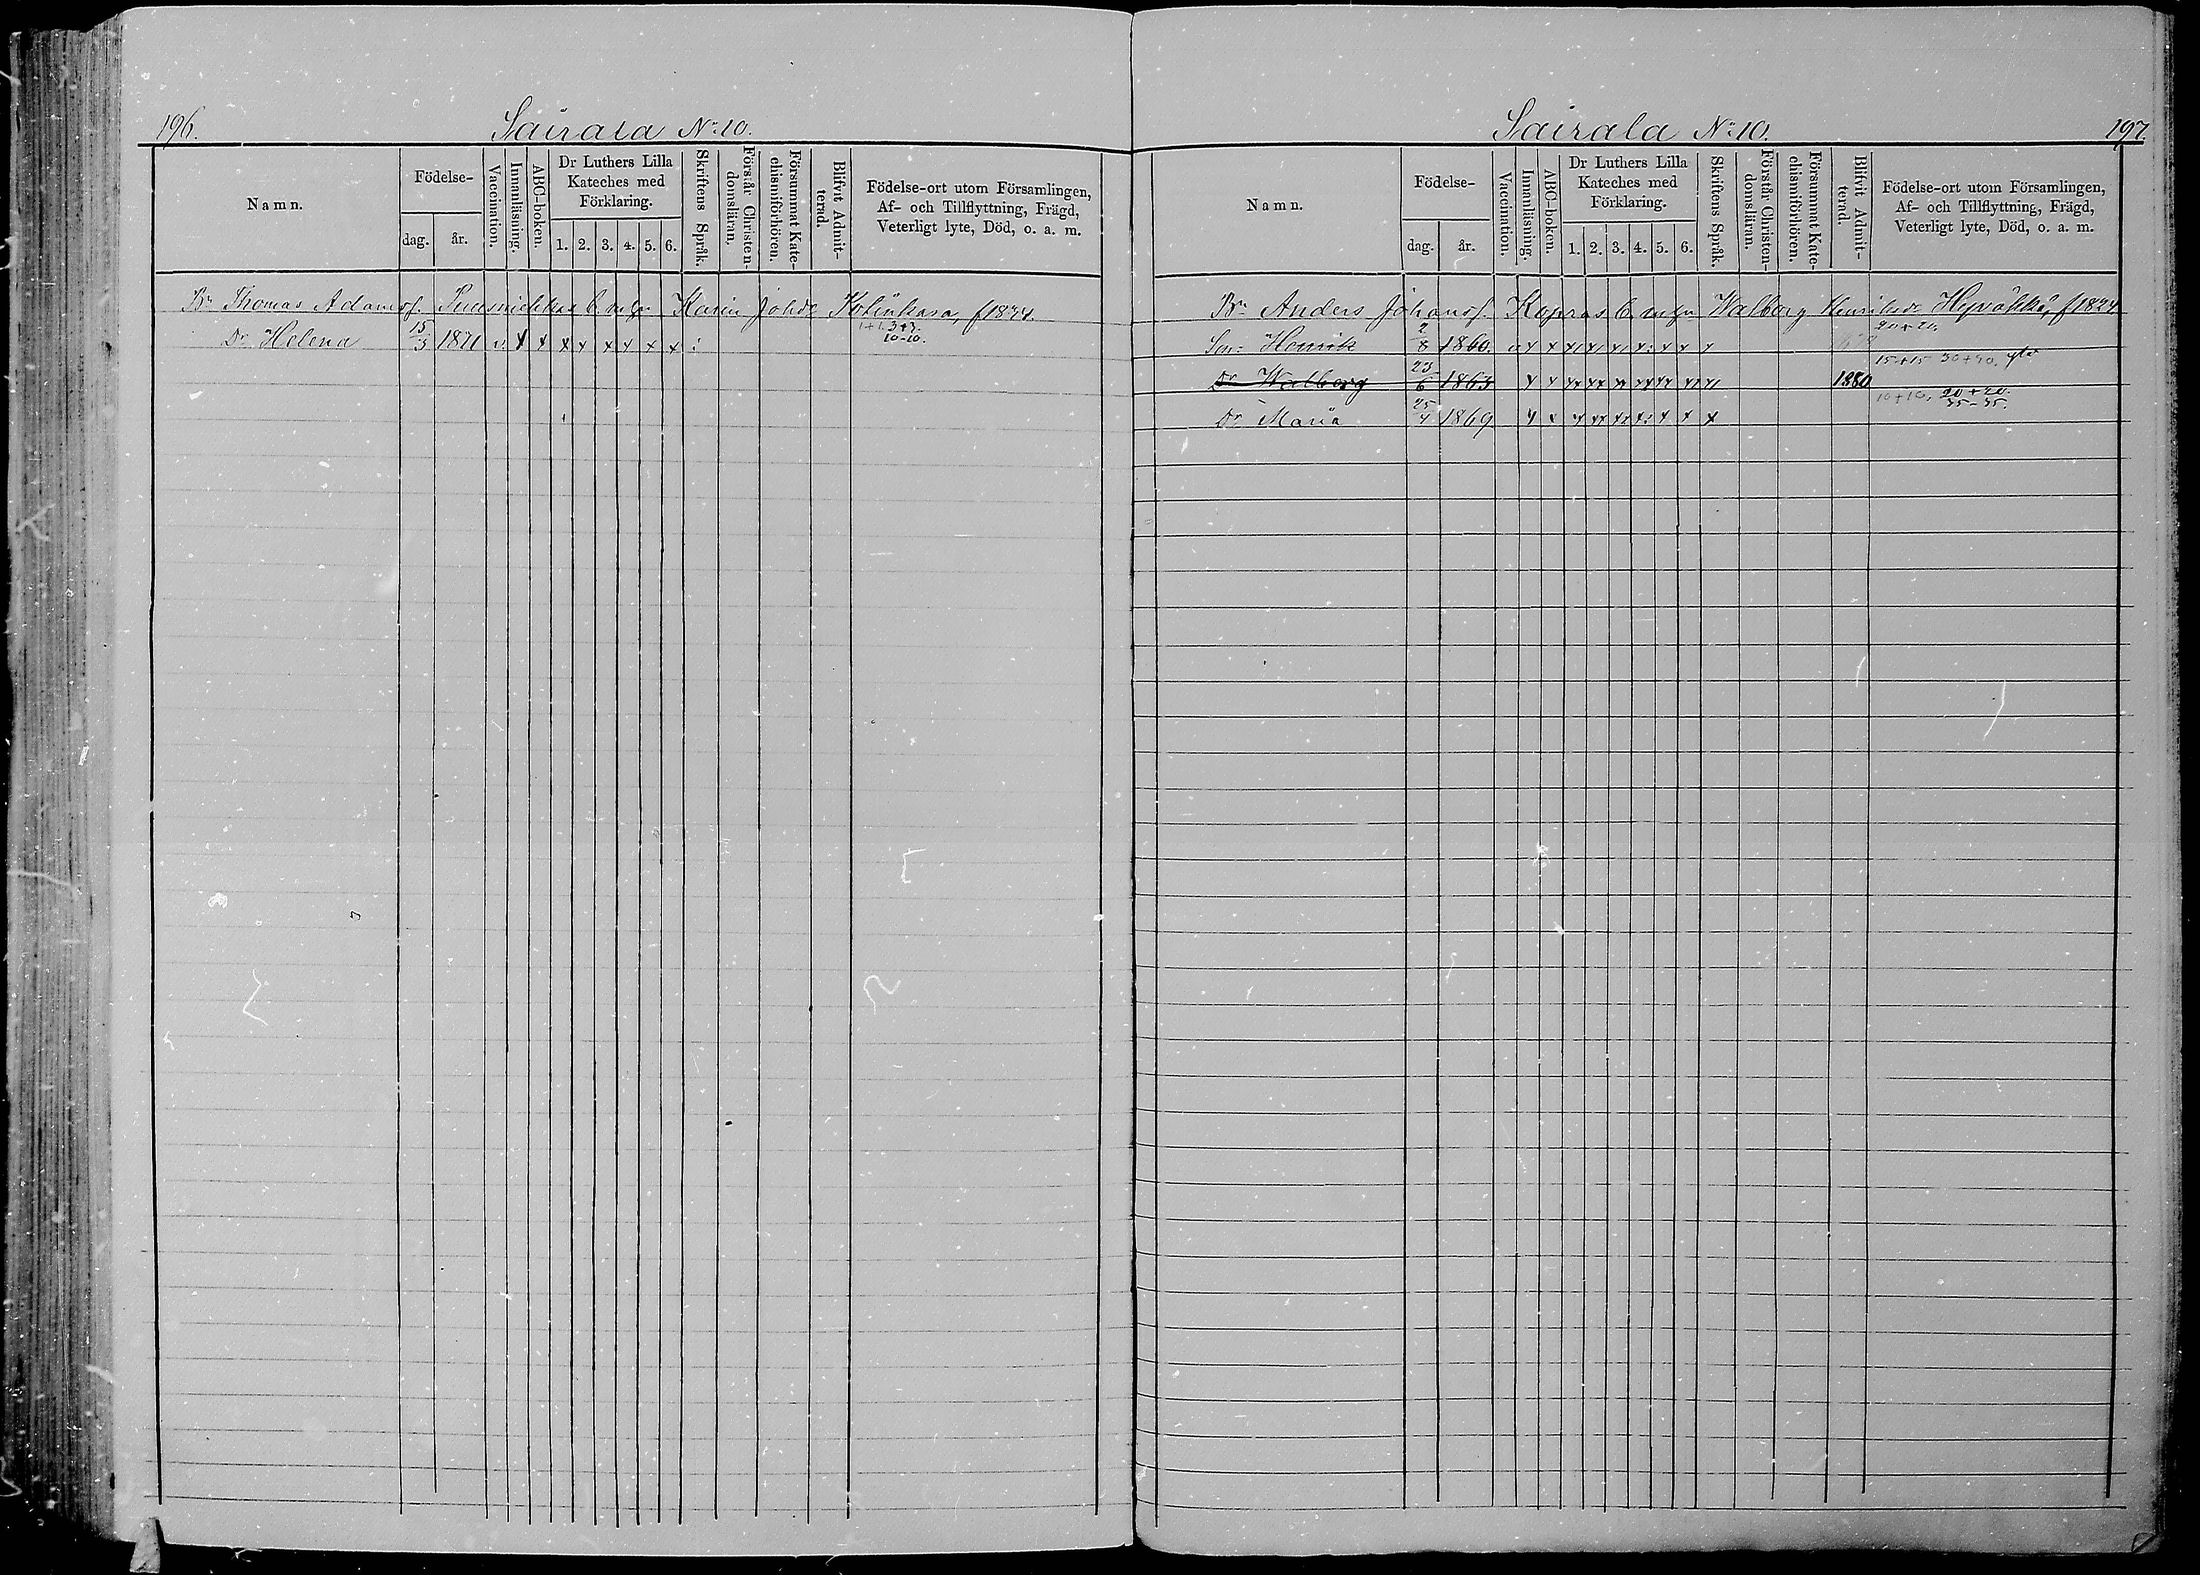 196.
Sairala No 10.
Namn.
Födelse-
dag. år.
Vaccination.
Innanläsning.
ABC-boken.
Dr Luthers Lilla Kateches med Förklaring.
1. 2. 3. 4. 5. 6.
Skriftens Språk.
Förstår Christendomsläran.
Försummat Katechismiförhören.
Blifvit Admitterad.
Födelse-ort utom Församlingen,
Af- och Tillflyttning, Frägd,
Veterligt lyte, Död, o. a. m.
Bn Thomas Adamsf. Karin Johd.
1+1. 3+3.
Dr Helena 15/3 1871 v x x x x x x x x :
10-10.
Sairala No 10.
197.
Namn.
Födelse-
dag. år.
Vaccination.
Innanläsning.
ABC-boken.
Dr Luthers Lilla Kateches med Förklaring.
1. 2. 3. 4. 5. 6.
Skriftens Språk.
Förstår Christendomsläran.
Försummat Katechismiförhören.
Blifvit Admitterad.
Födelse-ort utom Församlingen,
Af- och Tillflyttning, Frägd,
Veterligt lyte, Död, o. a. m.
Bn Anders Johansf. Kopras Walborg Henriksd.
20+20.
Son: Henrik 2/8 1860.
15+15 30+30.
Dr Walborg 23/6 1863 1880
10+10, 20+20.
35-35.
Dr Maria 25/4 1869